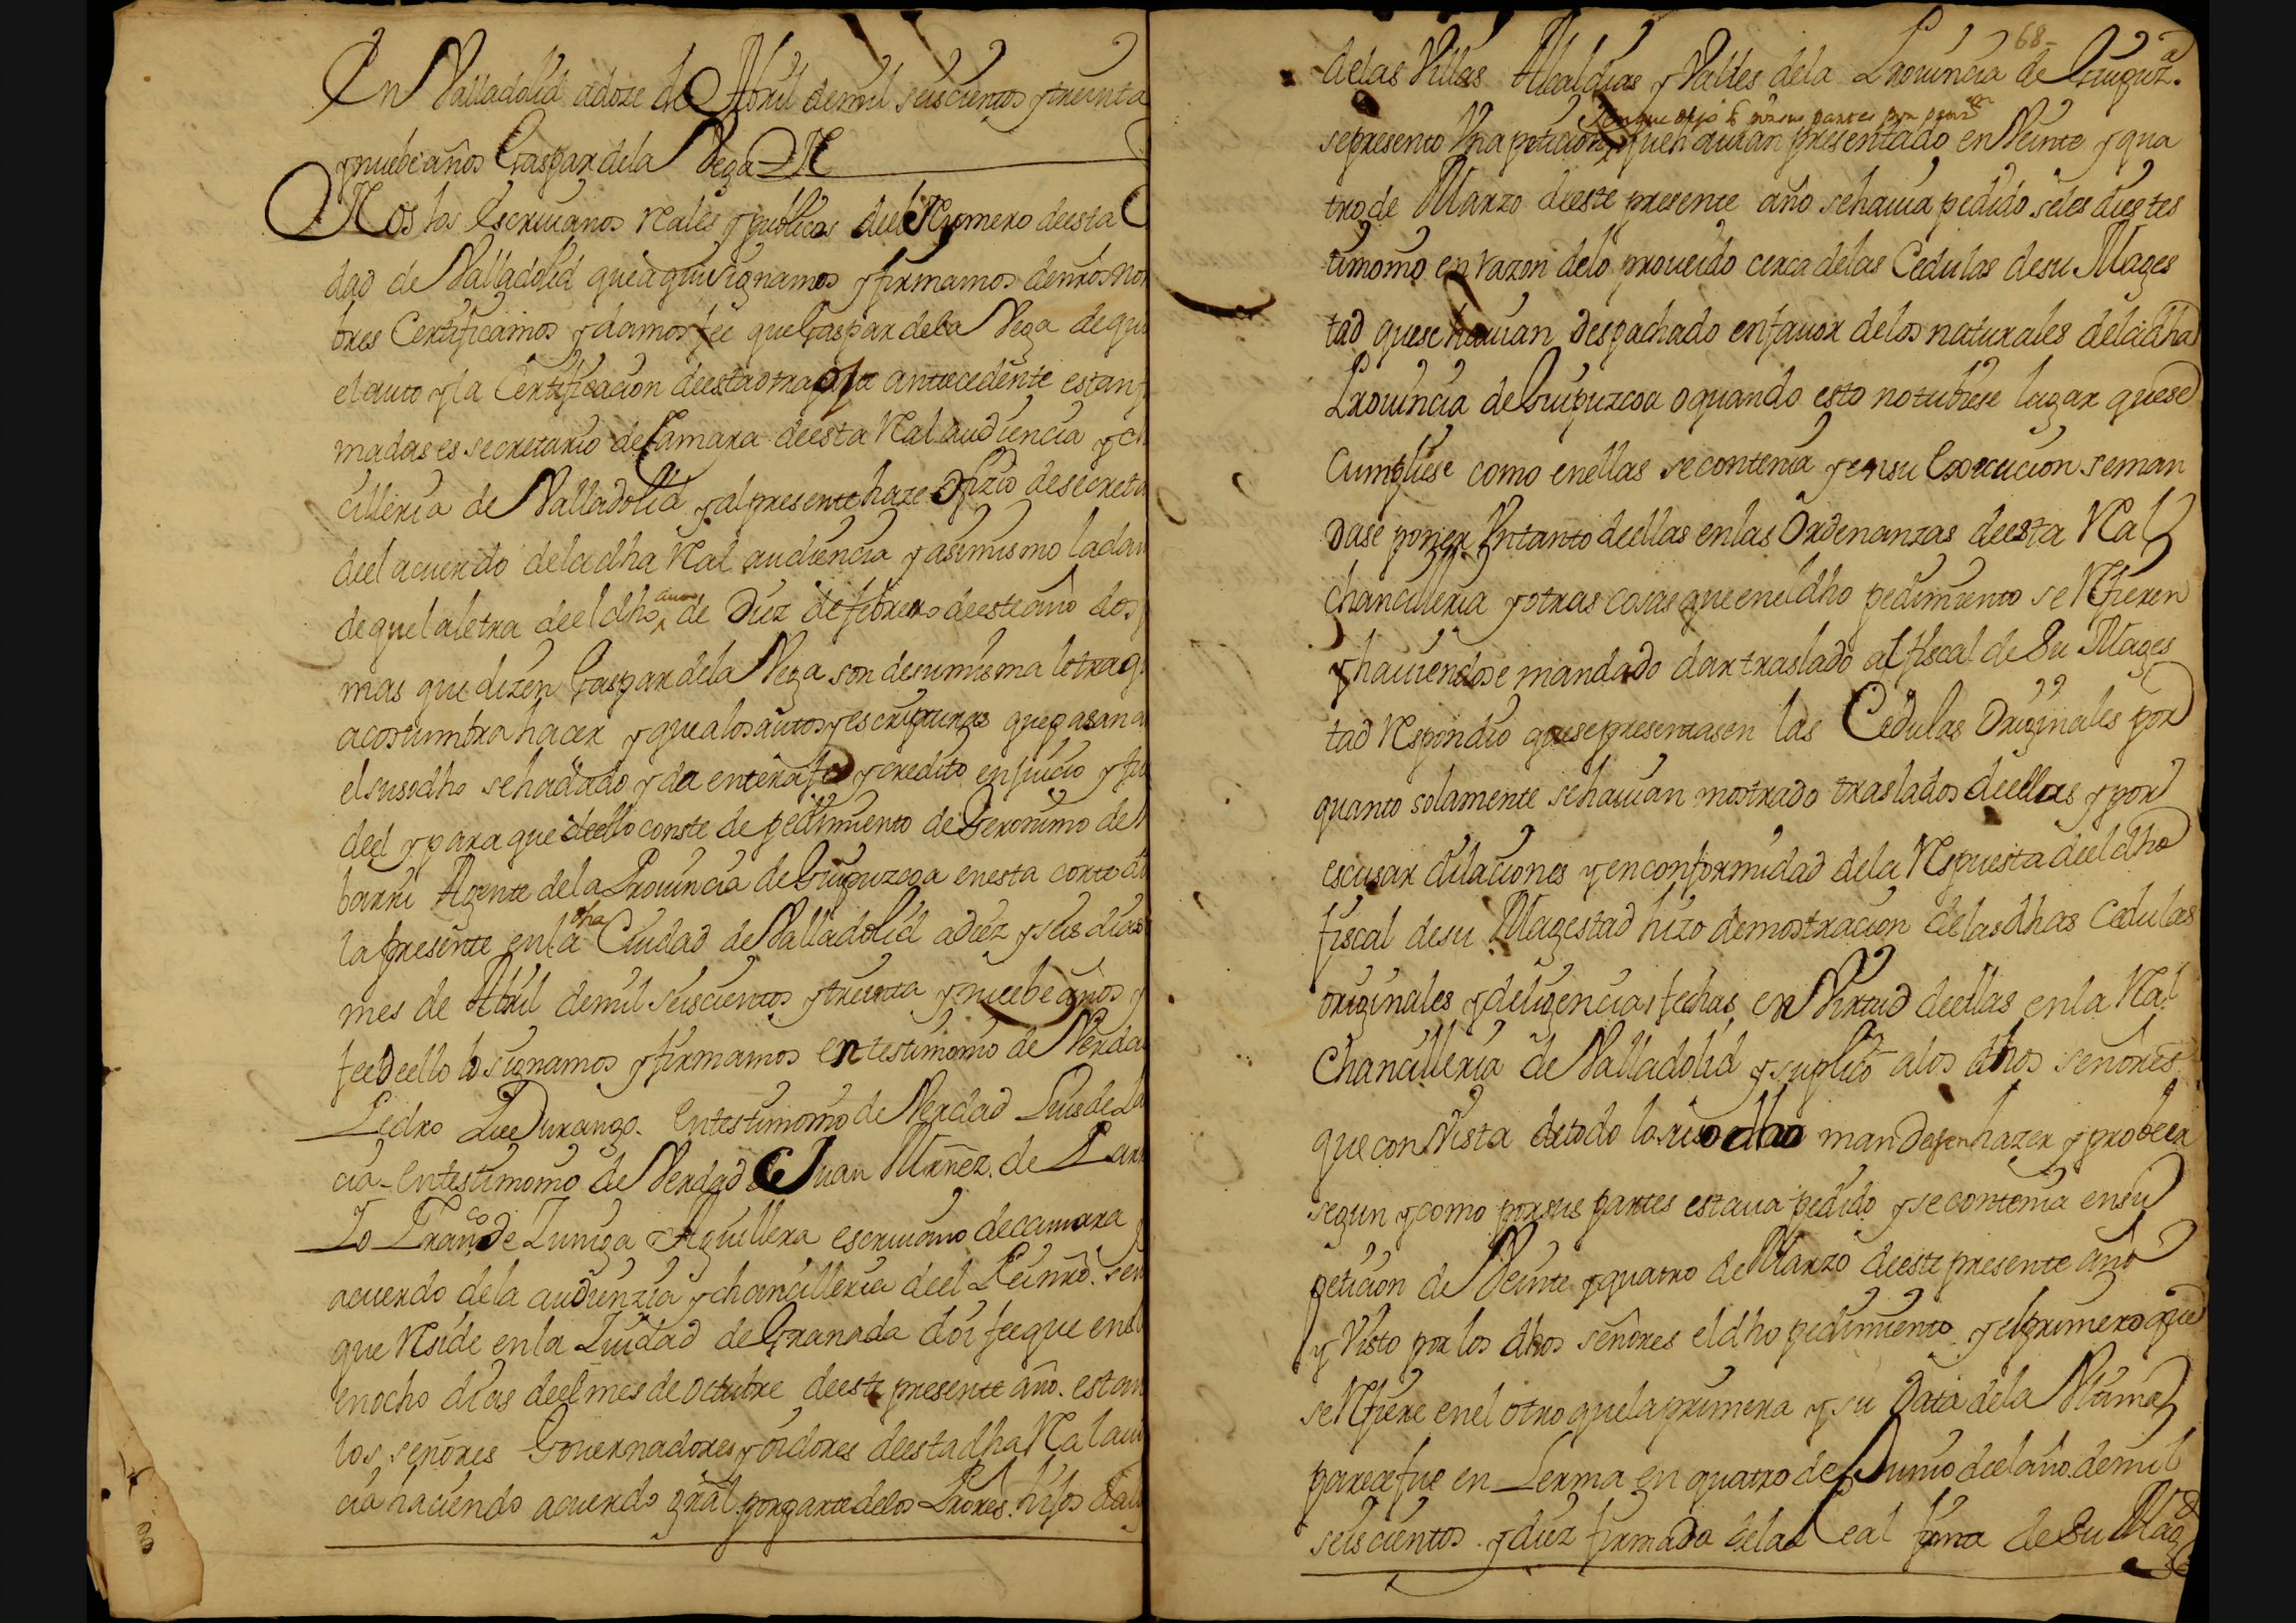 En Valladolid a doze de Abril de mil seiscientos y treinta
y nuebe años Gaspar de la Vega
Nos los Escriuanos Rales y publicos del Numero de esta
dad de Valladolid que aqui signamos y firmamos de nros nom
bres Certificamos y damos fee que Gaspar de la Vega de quien
el auto y la Certificacion de esta otra oja antecedente estan
madas es secretario de Camara de esta Ral audiencia y ch
cilleria de Valladolid y al presente haze ofizio de secreta
del acuerdo de la dha Ral audiencia y asimismo la da
de que la letra de el dho auto de Diez de febrero de este año
mas que dizen Gaspar de la Vega son de su misma letra q
acostumbra hacer y que a los autos y escripturas que pasan a
el susodho se ha dado y da entera fee y credito en juicio y fu
del y para que de ello conste de pedimiento de Geronimo de
barri Agente de la Prouincia de Guipuzcoa en esta corte di
la presente en la dha Ciudad de Valladolid a diez y seis dias
mes de Abril de mil seiscientos y treinta y nuebe años y
fee de ello lo signamos y firmamos en testimonio de Verda
Pedro de Durango. En testimonio de Verdad Luis de
cia - En testimonio de Verdad Juan Mrnez. de
Yo Franco de Zuniga Aguillera escriuano de camara
acuerdo de la audienzia y chancilleria de el Rei nro. señ
que Reside en la Ziudad de Granada doi fee que en
en ocho dias de el mes de octubre de este presente año. estan
los señores Gouernadores y oidores de esta dha Ral au
cia haciendo acuerdo gñal. por parte de los Prores. hijos dal
68
de las Villas Alcaldias y Valles de la Prouincia de Guipuza.
en que dijo q por sus partes por peticion
se presento Vna peticion, que hauian presentado en Veinte y qua
tro de Marzo de este presente año se hauia pedido se les dies tes
timonio en razon de lo proueido cerca de las Cedulas de su Mages
tad que se hauian Despachado en fauor de los naturales de la dha
Prouincia de Guipuzcoa o quando esto no tubiese lugar que se
Cumpliese como en ellas se contenia y en su Execucion se man
dase poner Vn tanto de ellas en las Ordenanzas de esta Ral
chancilleria y otras cosas que en el dho pedimiento se Refieren
y hauiendose mandado dar traslado al fiscal de Su Mages
tad Respondio que se presentasen las Cedulas Originales por
quanto solamente se hauian mostrado traslados de ellas y por
escusar dilaciones y en conformidad de la Respuesta de el dho
fiscal de su Magestad hizo demostracion de las dhas Cedulas
originales y deligencias fechas en Virtud de ellas en la Ral
Chancilleria de Valladolid y suplico a los dhos señores
que con Vista de todo lo susodho mandasen hazer y probeer
segun y como por sus partes estaua pedido y se contenia en su
peticion de Veinte y quatro de Marzo de este presente año
y Visto por los dhos señores el dho pedimiento y el primero que
se Refiere en el otro que la primera y su Data de la Vltima
parece fue en Lerma en quatro de Junio de el año de mil
seiscientos y diez firmada de la Real firma de Su Magd